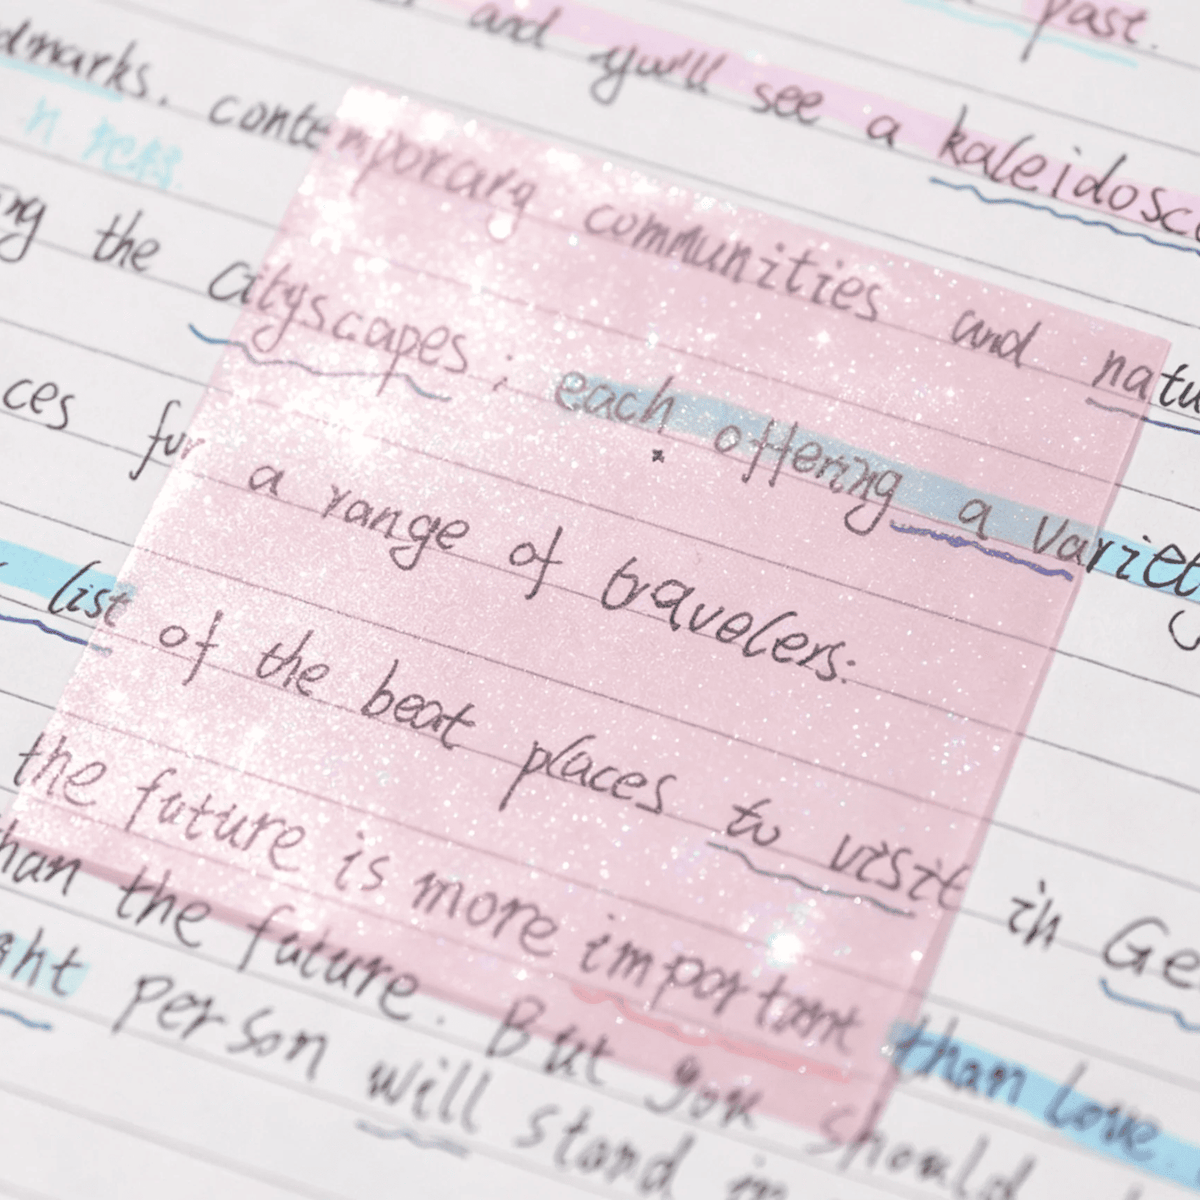 past.
and you'll see a kaleidosc
dmarks. contemporary communities and natu
ing the cityscapes; each offering a variet
ces for a range of travelers.
list of the beat places to visit in Ge
the future is more important than love
han the future. But you should
ght person will stand in